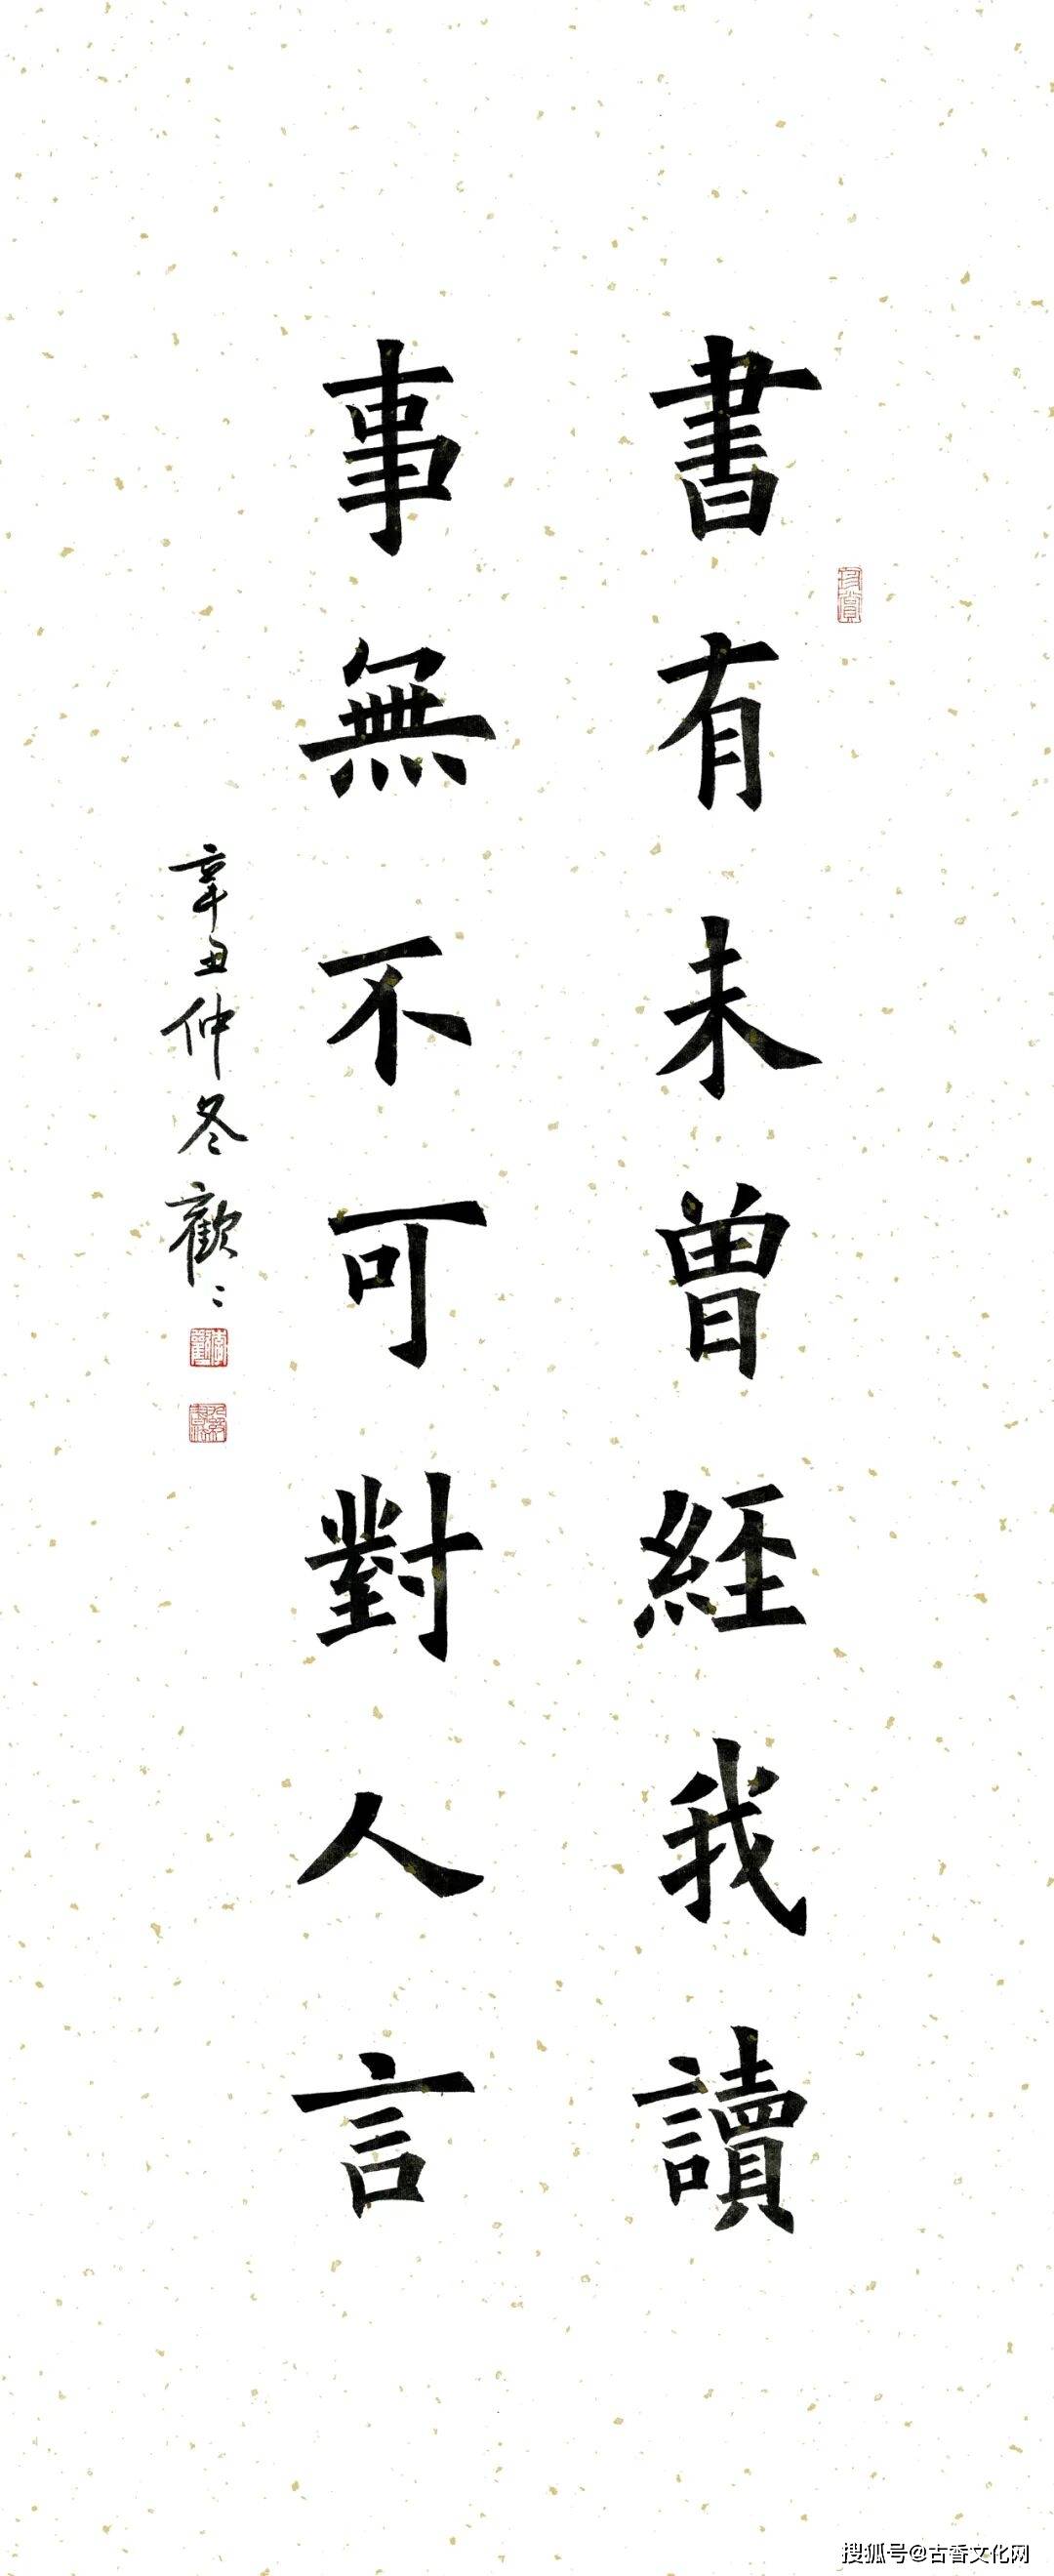 書有未曾經我讀
事無不可對人言
辛丑仲冬歡々
珍賞
搜狐号@古香文化网